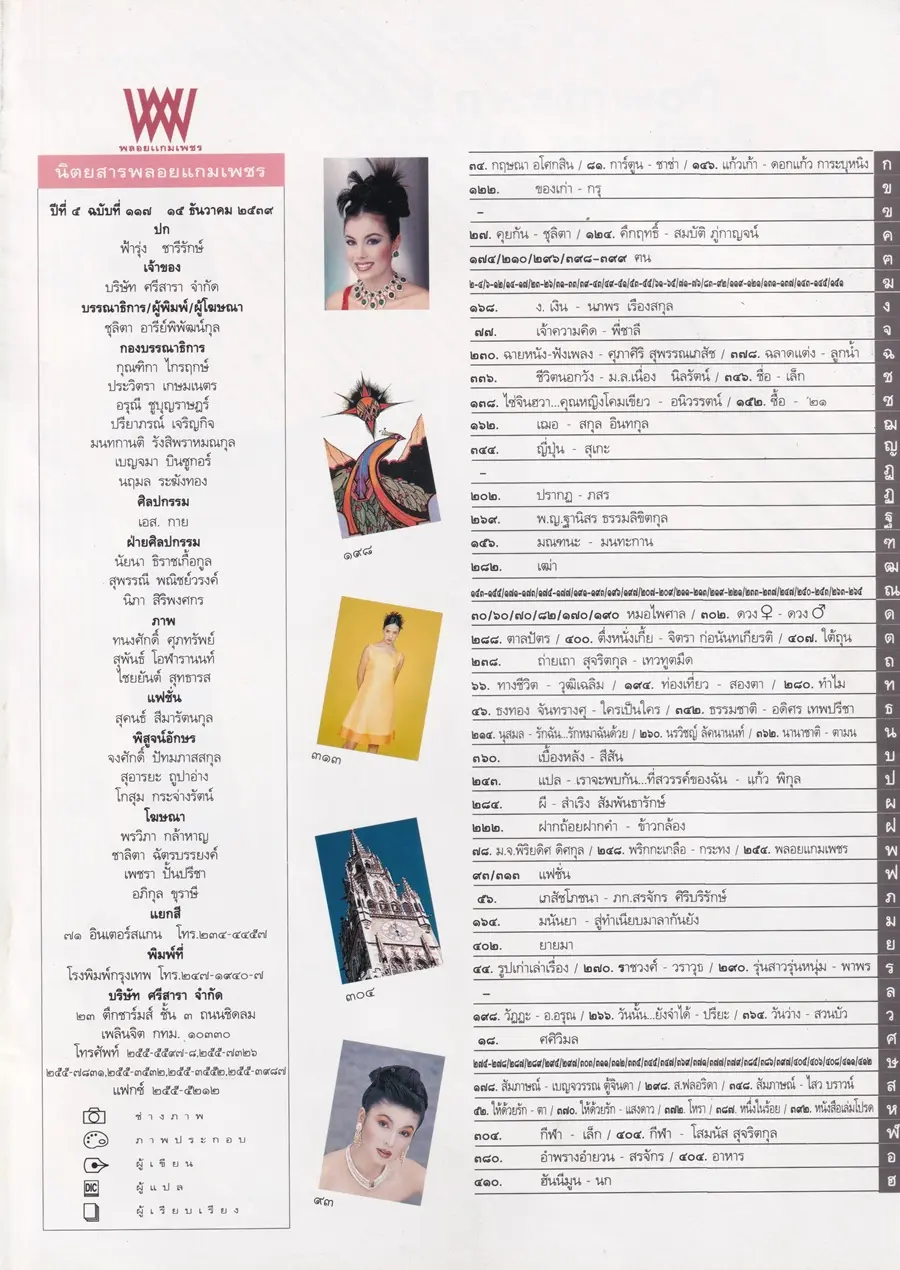 พลอยแกมเพชร
นิตยสารพลอยแกมเพชร
ปีที่ ๕ ฉบับที่ ๑๑๗ ๑๕ ธันวาคม ๒๕๓๙
ปก
ฟ้ารุ่ง ชารีรักษ์
เจ้าของ
บริษัท ศรีสารา จำกัด
บรรณาธิการ/ผู้พิมพ์/ผู้โฆษณา
ชุลิตา อารีย์พิพัฒน์กุล
กองบรรณาธิการ
กุณฑิกา ไกรฤกษ์
ประวิตรา เกษมเนตร
อรุณี ชูบุญราษฎร์
ปรียาภรณ์ เจริญกิจ
มนทกานติ รังสิพราหมณกุล
เบญจมา บินซูกอร์
นฤมล ระฆังทอง
ศิลปกรรม
เอส. กาย
ฝ่ายศิลปกรรม
นัยนา ธิราชเกื้อกูล
สุพรรณี พณิชย์วรงค์
นิภา สิริพงศกร
ภาพ
ทนงศักดิ์ ศุภทรัพย์
สุพันธ์ โอฬารานนท์
ไชยยันต์ สุทธารส
แฟชั่น
สุคนธ์ สีมารัตนกุล
พิสูจน์อักษร
จงศักดิ์ ปัทมภาสสกุล
สุอารยะ ถูปาอ่าง
โกสุม กระจ่างรัตน์
โฆษณา
พรวิภา กล้าหาญ
ชาลิตา ฉัตรบรรยงค์
เพชรา ปั้นปรีชา
อภิกุล ขุราษี
แยกสี
๗๑ อินเตอร์สแกน โทร.๒๓๔-๔๔๕๗
พิมพ์ที่
โรงพิมพ์กรุงเทพ โทร.๒๔๗-๑๙๔๐-๗
บริษัท ศรีสารา จำกัด
๒๓ ตึกชาร์มส์ ชั้น ๓ ถนนชิดลม
เพลินจิต กทม. ๑๐๓๓๐
โทรศัพท์ ๒๕๕-๕๕๙๗-๘,๒๕๕-๗๓๒๖
๒๕๕-๗๘๓๑,๒๕๕-๓๕๓๒,๒๕๕-๓๕๕๒,๒๕๕-๓๙๘๗
แฟกซ์ ๒๕๕-๕๒๑๒
ช่างภาพ
ภาพประกอบ
ผู้เขียน
DIC ผู้แปล
ผู้เรียบเรียง
๑๙๘
๓๑๓
๓๐๔
๙๓
๓๔. กฤษณา อโศกสิน / ๘๑. การ์ตูน - ซาซ่า / ๑๔๖. แก้วเก้า - ดอกแก้ว การะบุหนิง ก
๑๒๒. ของเก่า - กรุ ข
– ฃ
๒๗. คุยกัน - ชุลิตา / ๑๒๔. คึกฤทธิ์ - สมบัติ ภู่กาญจน์ ค
๑๗๔/๒๑๐/๒๙๖/๓๙๘-๓๙๙ ฅน ฅ
ฆ
๑๖๘. ง. เงิน - นภพร เรืองสกุล ง
๗๗. เจ้าความคิด - พี่ชาลี จ
๒๓๐. ฉายหนัง-ฟังเพลง - ศุภาศิริ สุพรรณเภสัช / ๓๗๘. ฉลาดแต่ง - ลูกน้ำ ฉ
๓๓๖. ชีวิตนอกวัง - ม.ล.เนื่อง นิลรัตน์ / ๓๔๖. ชื่อ - เล็ก ช
๑๓๘. ไซ่จินฮวา...คุณหญิงโคมเขียว - อนิวรรตน์ / ๑๕๒. ซื้อ - '๒๑ ซ
๑๖๒. เฌอ - สกุล อินทกุล ฌ
๓๔๔. ญี่ปุ่น - สุเกะ ญ
– ฎ
๒๐๒. ปรากฏ - ภสร ฏ
๒๖๙. พ.ญ.ฐานิสร ธรรมลิขิตกุล ฐ
๑๕๖. มณฑนะ - มนทะกาน ฑ
๒๘๒. เฒ่า ฒ
ณ
๓๐/๖๐/๗๐/๘๒/๑๗๐/๑๙๐ หมอไพศาล / ๓๐๒. ดวง♀ - ดวง♂ ด
๒๘๘. ตาลปัตร / ๔๐๐. ตึ่งหนั่งเกี้ย - จิตรา ก่อนันทเกียรติ / ๔๐๗. ใต้ถุน ต
๒๓๘. ถ่ายเถา สุจริตกุล - เทวทูตมืด ถ
๖๖. ทางชีวิต - วุฒิเฉลิม / ๑๙๔. ท่องเที่ยว - สองตา / ๒๘๐. ทำไม ท
๔๖. ธงทอง จันทรางศุ - ใครเป็นใคร / ๓๔๒. ธรรมชาติ - อดิศร เทพปรีชา ธ
๒๑๔. นุสมล - รักฉัน...รักหมาฉันด้วย / ๒๖๐. นรวิชญ์ ลัคนานนท์ / ๓๖๒. นานาชาติ - ตามน น
๓๖๐. เบื้องหลัง - สีสัน บ
๒๔๓. แปล - เราจะพบกัน...ที่สวรรค์ของฉัน - แก้ว พิกุล ป
๒๘๔. ผี - สำเริง สัมพันธารักษ์ ผ
๒๒๒. ฝากถ้อยฝากคำ - ข้าวกล้อง ฝ
๗๘. ม.จ.พิริยดิศ ดิศกุล / ๒๔๘. พริกกะเกลือ - กระทง / ๒๕๔. พลอยแกมเพชร พ
๙๓/๓๑๓ แฟชั่น ฟ
๕๖. เภสัชโภชนา - ภก.สรจักร ศิริบริรักษ์ ภ
๑๖๔. มนันยา - สู่ทำเนียบมาลากันยัง ม
๔๐๒. ยายมา ย
๔๔. รูปเก่าเล่าเรื่อง / ๒๗๐. ราชวงศ์ - วราวุธ / ๒๙๐. รุ่นสาวรุ่นหนุ่ม - พาพร ร
– ล
๑๙๘. วัฏฏะ - อ.อรุณ / ๒๖๖. วันนั้น...ยังจำได้ - ปรียะ / ๓๖๔. วันว่าง - สวนบัว ว
๑๘. ศศิวิมล ศ
ษ
๑๗๘. สัมภาษณ์ - เบญจวรรณ ตู้จินดา / ๒๙๘. ส.ฟลอริดา / ๓๔๘. สัมภาษณ์ - ไสว บราวน์ ส
๕๒. ให้ด้วยรัก - ตา / ๓๗๐. ให้ด้วยรัก - แสงดาว / ๓๗๒. โหรา / ๓๘๗. หนึ่งในร้อย / ๓๙๒. หนังสือเล่มโปรด ห
๓๐๔. กีฬา - เล็ก / ๔๐๔. กีฬา - โสมนัส สุจริตกุล ฬ
๓๘๐. อำพรางอำยวน - สรจักร / ๔๐๔. อาหาร อ
๔๑๐. ฮันนีมูน - นก ฮ